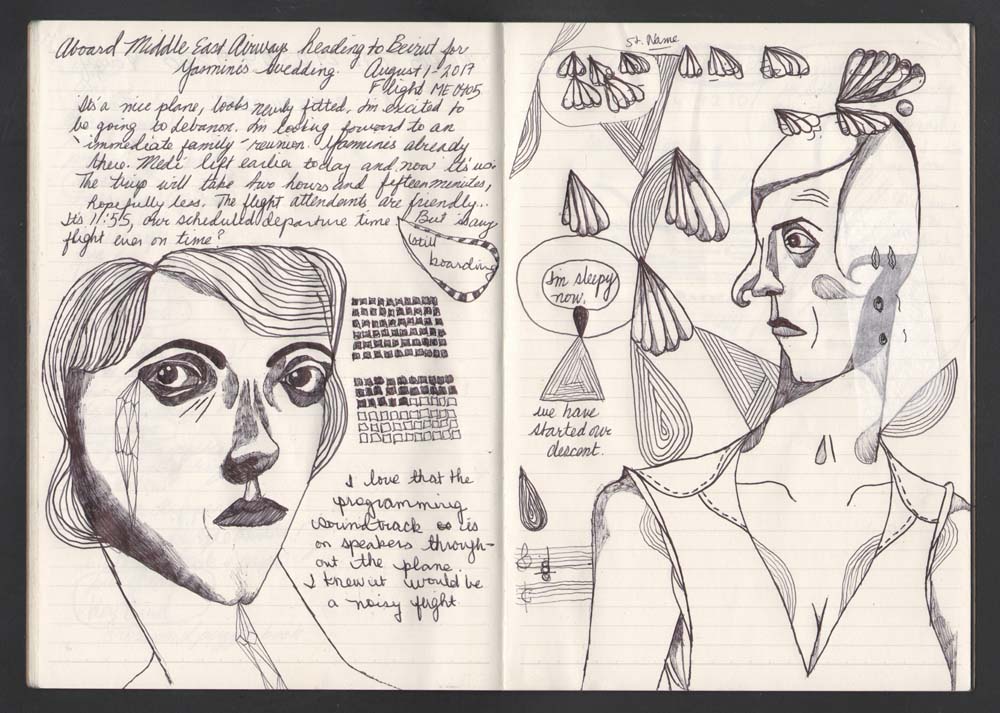 Aboard Middle East Airways heading to Beirut for
Yasmin's wedding. August 1-2017
Flight ME 0405
It's a nice plane, looks newly fitted. Im excited to
be going to Lebanon. Im looking forward to an
immediate family-reunion. Yasmin's already
there. Medi left earlier today and now it's us.
The trip will take two hours and fifteen minutes,
hopefully less. The flight attendants are friendly...
It's 11:55, our scheduled departure time. But is any
flight ever on time?
still
boarding
I love that the
programming
soundtrack is
on speakers through-
out the plane.
I knew it would be
a noisy flight
St. Name
I'm sleepy
now.
we have
started our
descent.